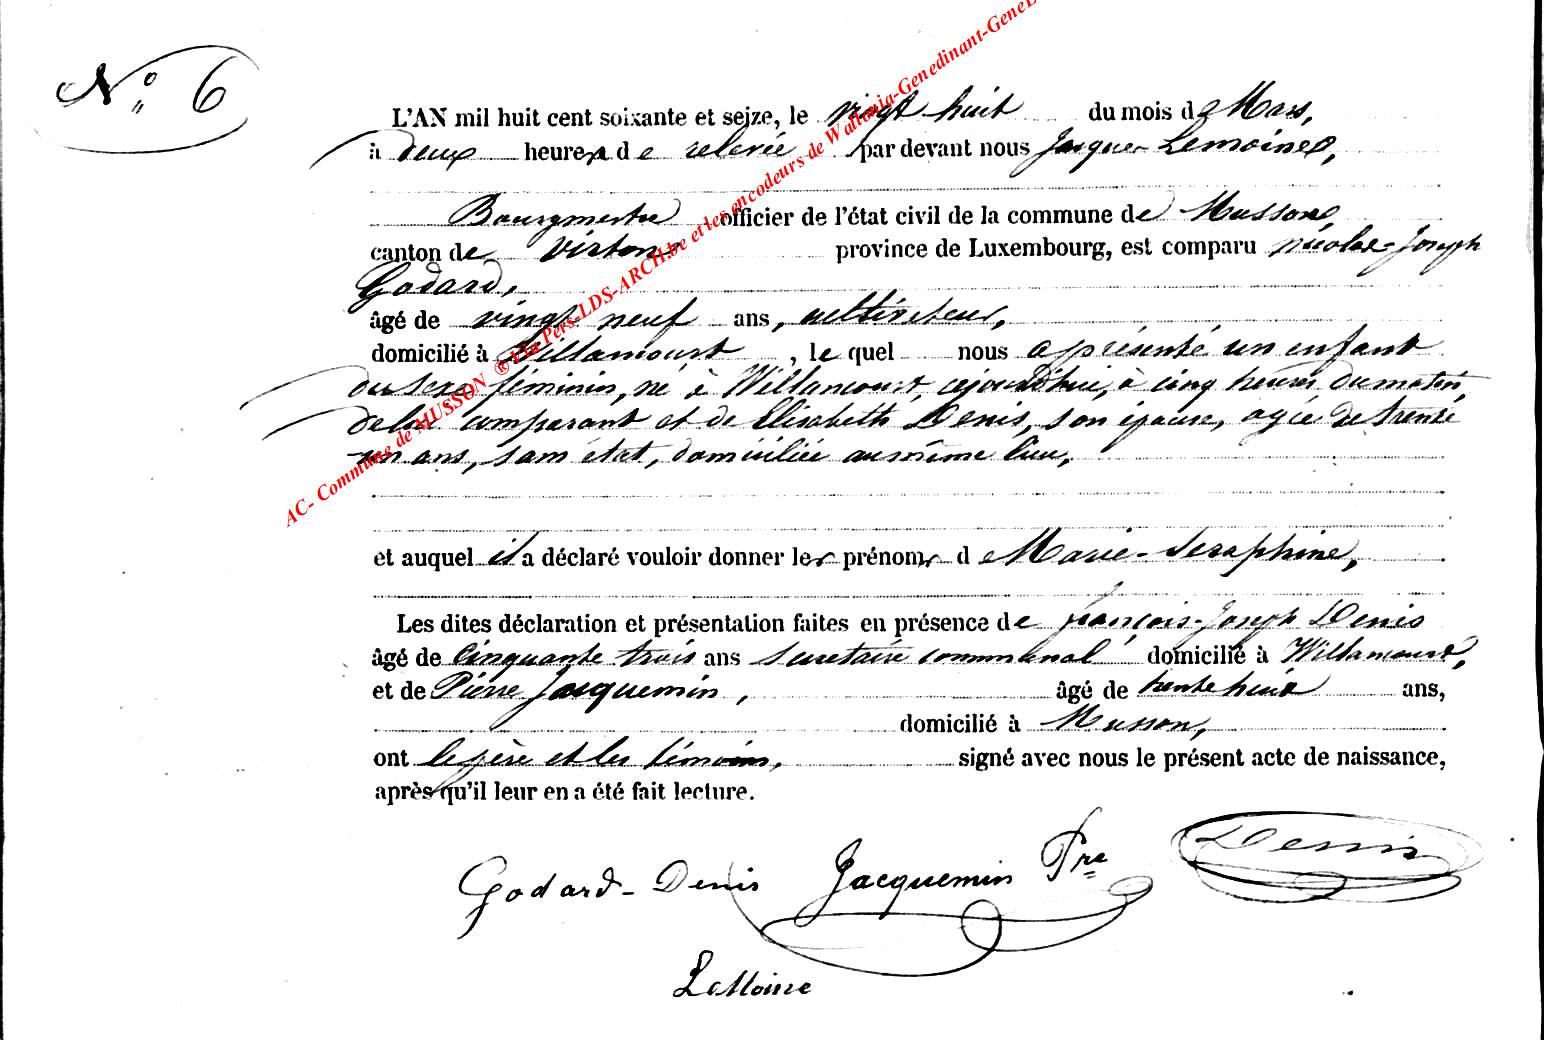 N° 6
AC- Commune de MUSSON ® Via Pers-LDS-ARCH.be et les encodeurs de Wallonia-Genedinant-GeneL
L'AN mil huit cent soixante et seize, le vingt huit du mois de Mars,
à deux heures de relevée par devant nous Jacques Lemoine,
Bourgmestre officier de l'état civil de la commune de Musson,
canton de Virton province de Luxembourg, est comparu Nicolas-Joseph
Godard,
âgé de vingt neuf ans, cultivateur,
domicilié à Willancourt, le quel nous a présenté un enfant
du sexe féminin, né à Willancourt, cejourd'hui, à cinq heures du matin,
de lui comparant et de Elisabeth Denis, son épouse, agée de trente
un ans, sans état, domiciliée au même lieu,
et auquel il a déclaré vouloir donner les prénoms d e Marie-Seraphine,
Les dites déclaration et présentation faites en présence de françois-Joseph Denis
âgé de cinquante trois ans secretaire communal domicilié à Willancourt,
et de Pierre Jacquemin, âgé de trente huit ans,
domicilié à Musson,
ont le père et les témoins, signé avec nous le présent acte de naissance,
après qu'il leur en a été fait lecture.
Godard-Denis Jacquemin Pre Denis
LeMoine